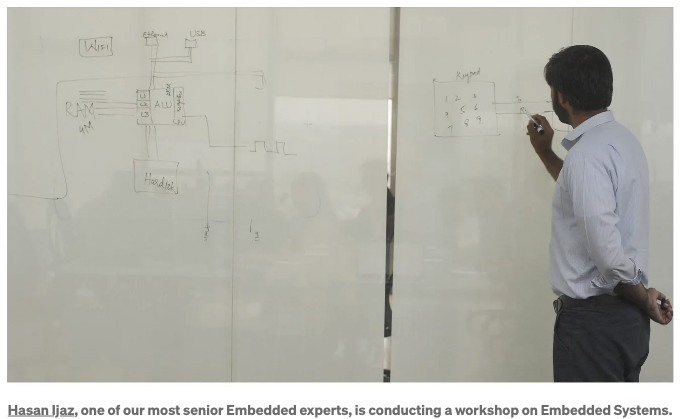 Ethernet USB
WiFi
RAM
4M
ALU
Hardisk
Keypad
1 2 3
5 6
7 8 9
Hasan Ijaz, one of our most senior Embedded experts, is conducting a workshop on Embedded Systems.